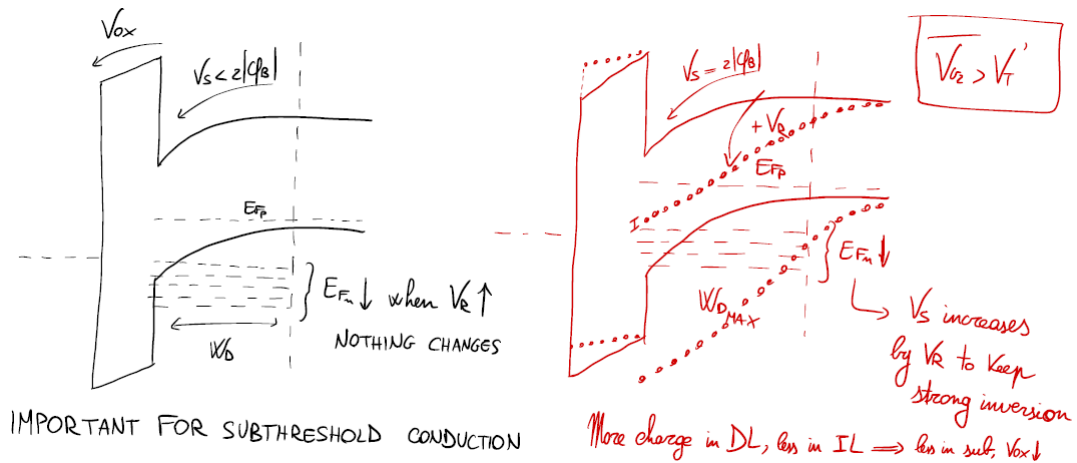 VOX
VS < 2|φB|
EFp
EFn ↓ when VR ↑
NOTHING CHANGES
WD
IMPORTANT FOR SUBTHRESHOLD CONDUCTION
VS = 2|φB|
VG2 > VT'
+ VR
EFp
I
EFn ↓
WD MAX
VS increases
by VR to keep
strong inversion
More charge in DL, less in IL ⟹ less in sub, VOX ↓